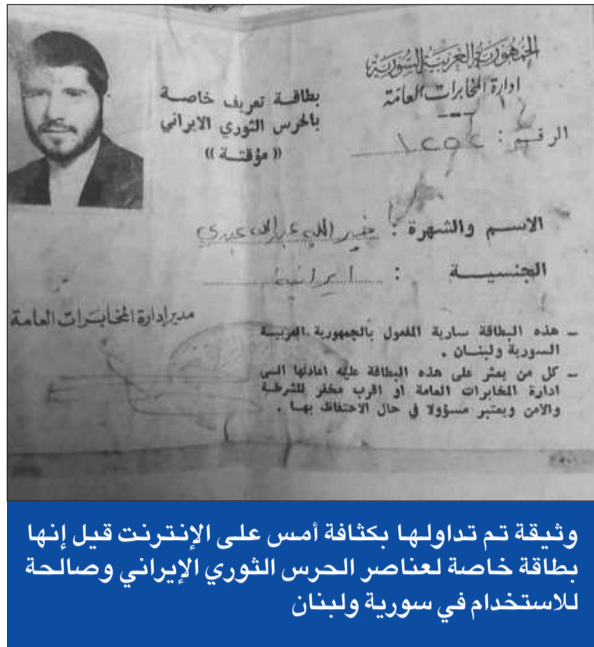 الجمهورية العربية السورية
ادارة المخابرات العامة
الرقم :
بطاقة تعريف خاصة
بالحرس الثوري الايراني
« مؤقتة »
الاسم والشهرة : خير الله عبدالله عبدي
الجنسية : ايرانية
مدير إدارة المخابرات العامة
– هذه البطاقة سارية المفعول بالجمهورية العربية
السورية ولبنان .
– كل من يعثر على هذه البطاقة عليه اعادتها الى
ادارة المخابرات العامة او اقرب مخفر للشرطة
والامن ويعتبر مسؤولا في حال الاحتفاظ بها .
وثيقة تم تداولها بكثافة أمس على الإنترنت قيل إنها
بطاقة خاصة لعناصر الحرس الثوري الإيراني وصالحة
للاستخدام في سورية ولبنان